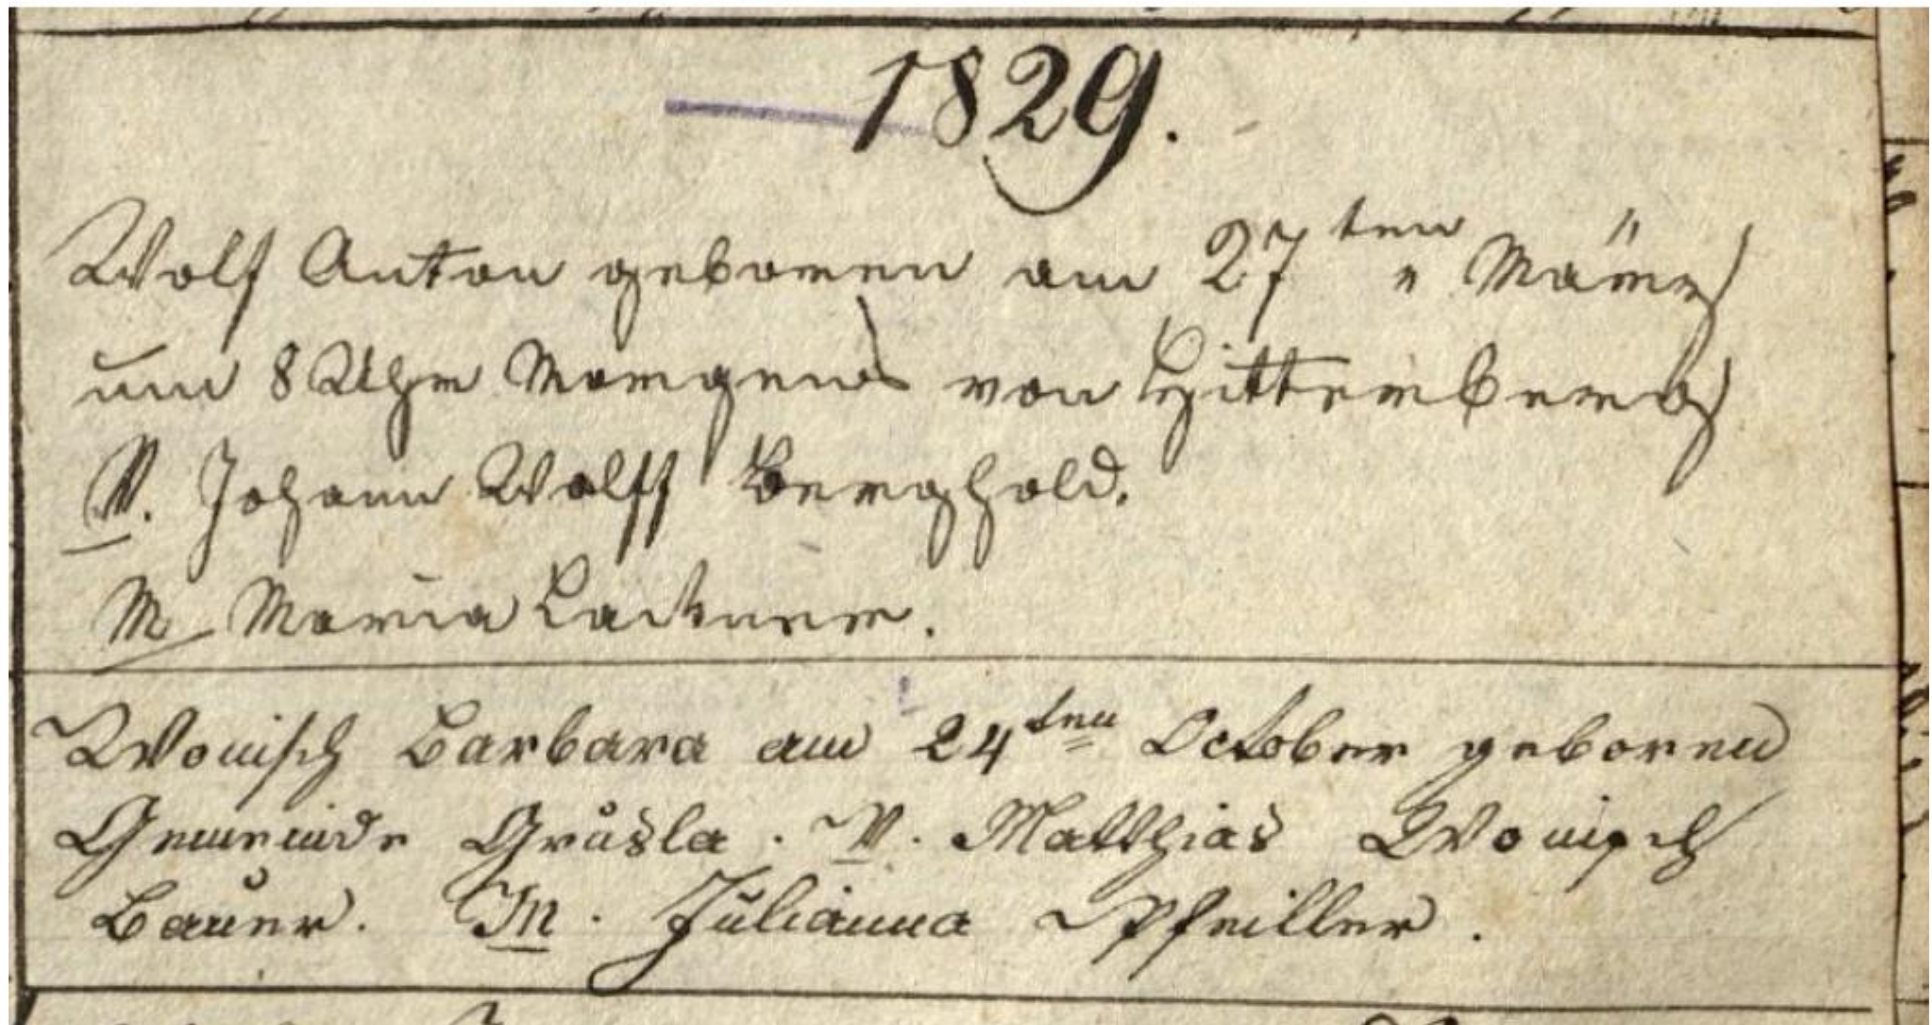 1829.
Wolf Anton geboren am 27ten März
um 8 Uhr Morgens von Hittenberg
V. Johann Wolff Berghold.
M Maria Lackner.
Wonisch Barbara am 24ten October geboren
Gemeinde Grusla. V. Matthias Wonisch
Bauer. M. Julianna Pfeiller.